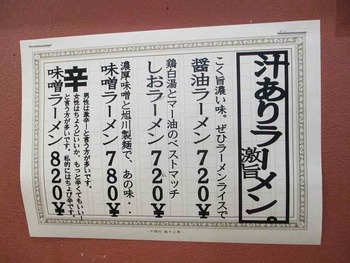 汁ありラーメン。
激旨
こく旨濃い味。ぜひラーメンライスで
醤油ラーメン720¥
鶏白湯とマー油のベストマッチ
しおラーメン720¥
濃厚味噌と旭川製麺で、あの味・・
味噌ラーメン780¥
辛
味噌ラーメン820¥
男性は激辛ーと言う方が多いです。
女性はちょうどいいか、もっと辛くてもいい!
と言う方が多いです。私的にはちょび辛です。